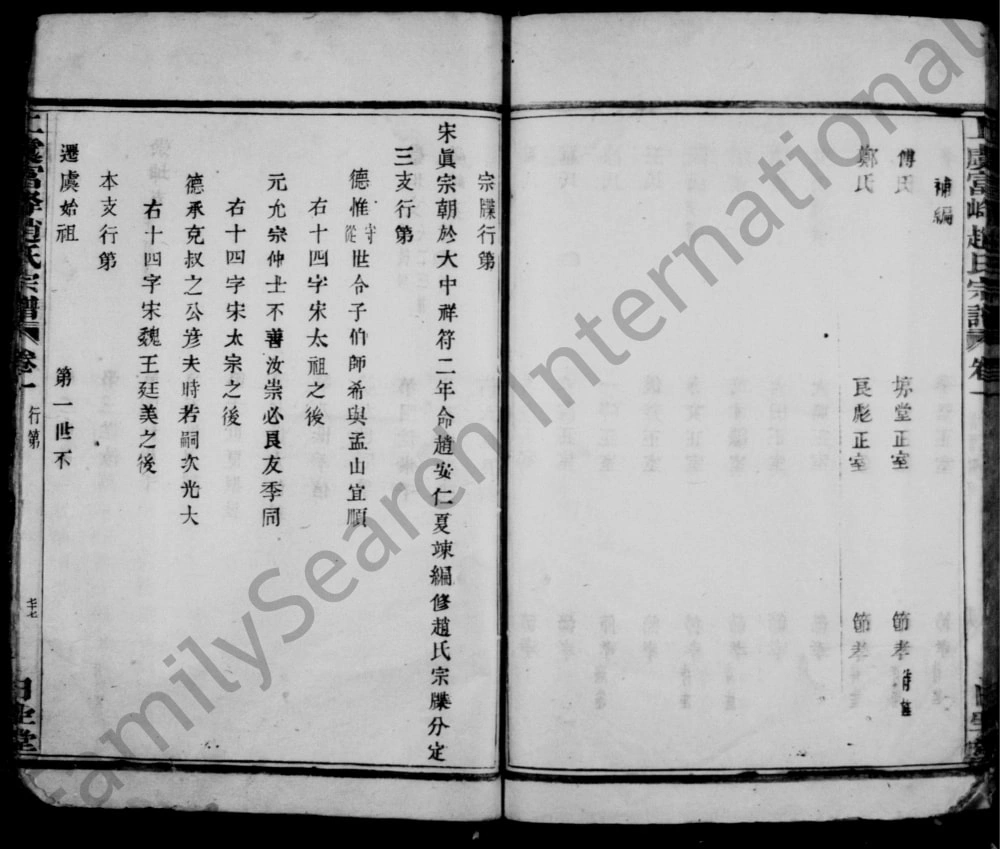 上虞富峰趙氏宗譜 卷一
補編
傅氏 埁堂正室 節孝
鄭氏 良彪正室 節孝
宗牒行第
宋眞宗朝於大中祥符二年命趙安仁夏竦編修趙氏宗牒分定
三支行第
德惟守從世令子伯師希與孟由宜順
右十四字宋太祖之後
元允宗仲士不善汝崇必良友季同
右十四字宋太宗之後
德承克叔之公彦夫時若嗣次光大
右十四字宋魏王廷美之後
本支行第
遷虞始祖 第一世不
上虞富峰趙氏宗譜 卷一 行第
FamilySearch International